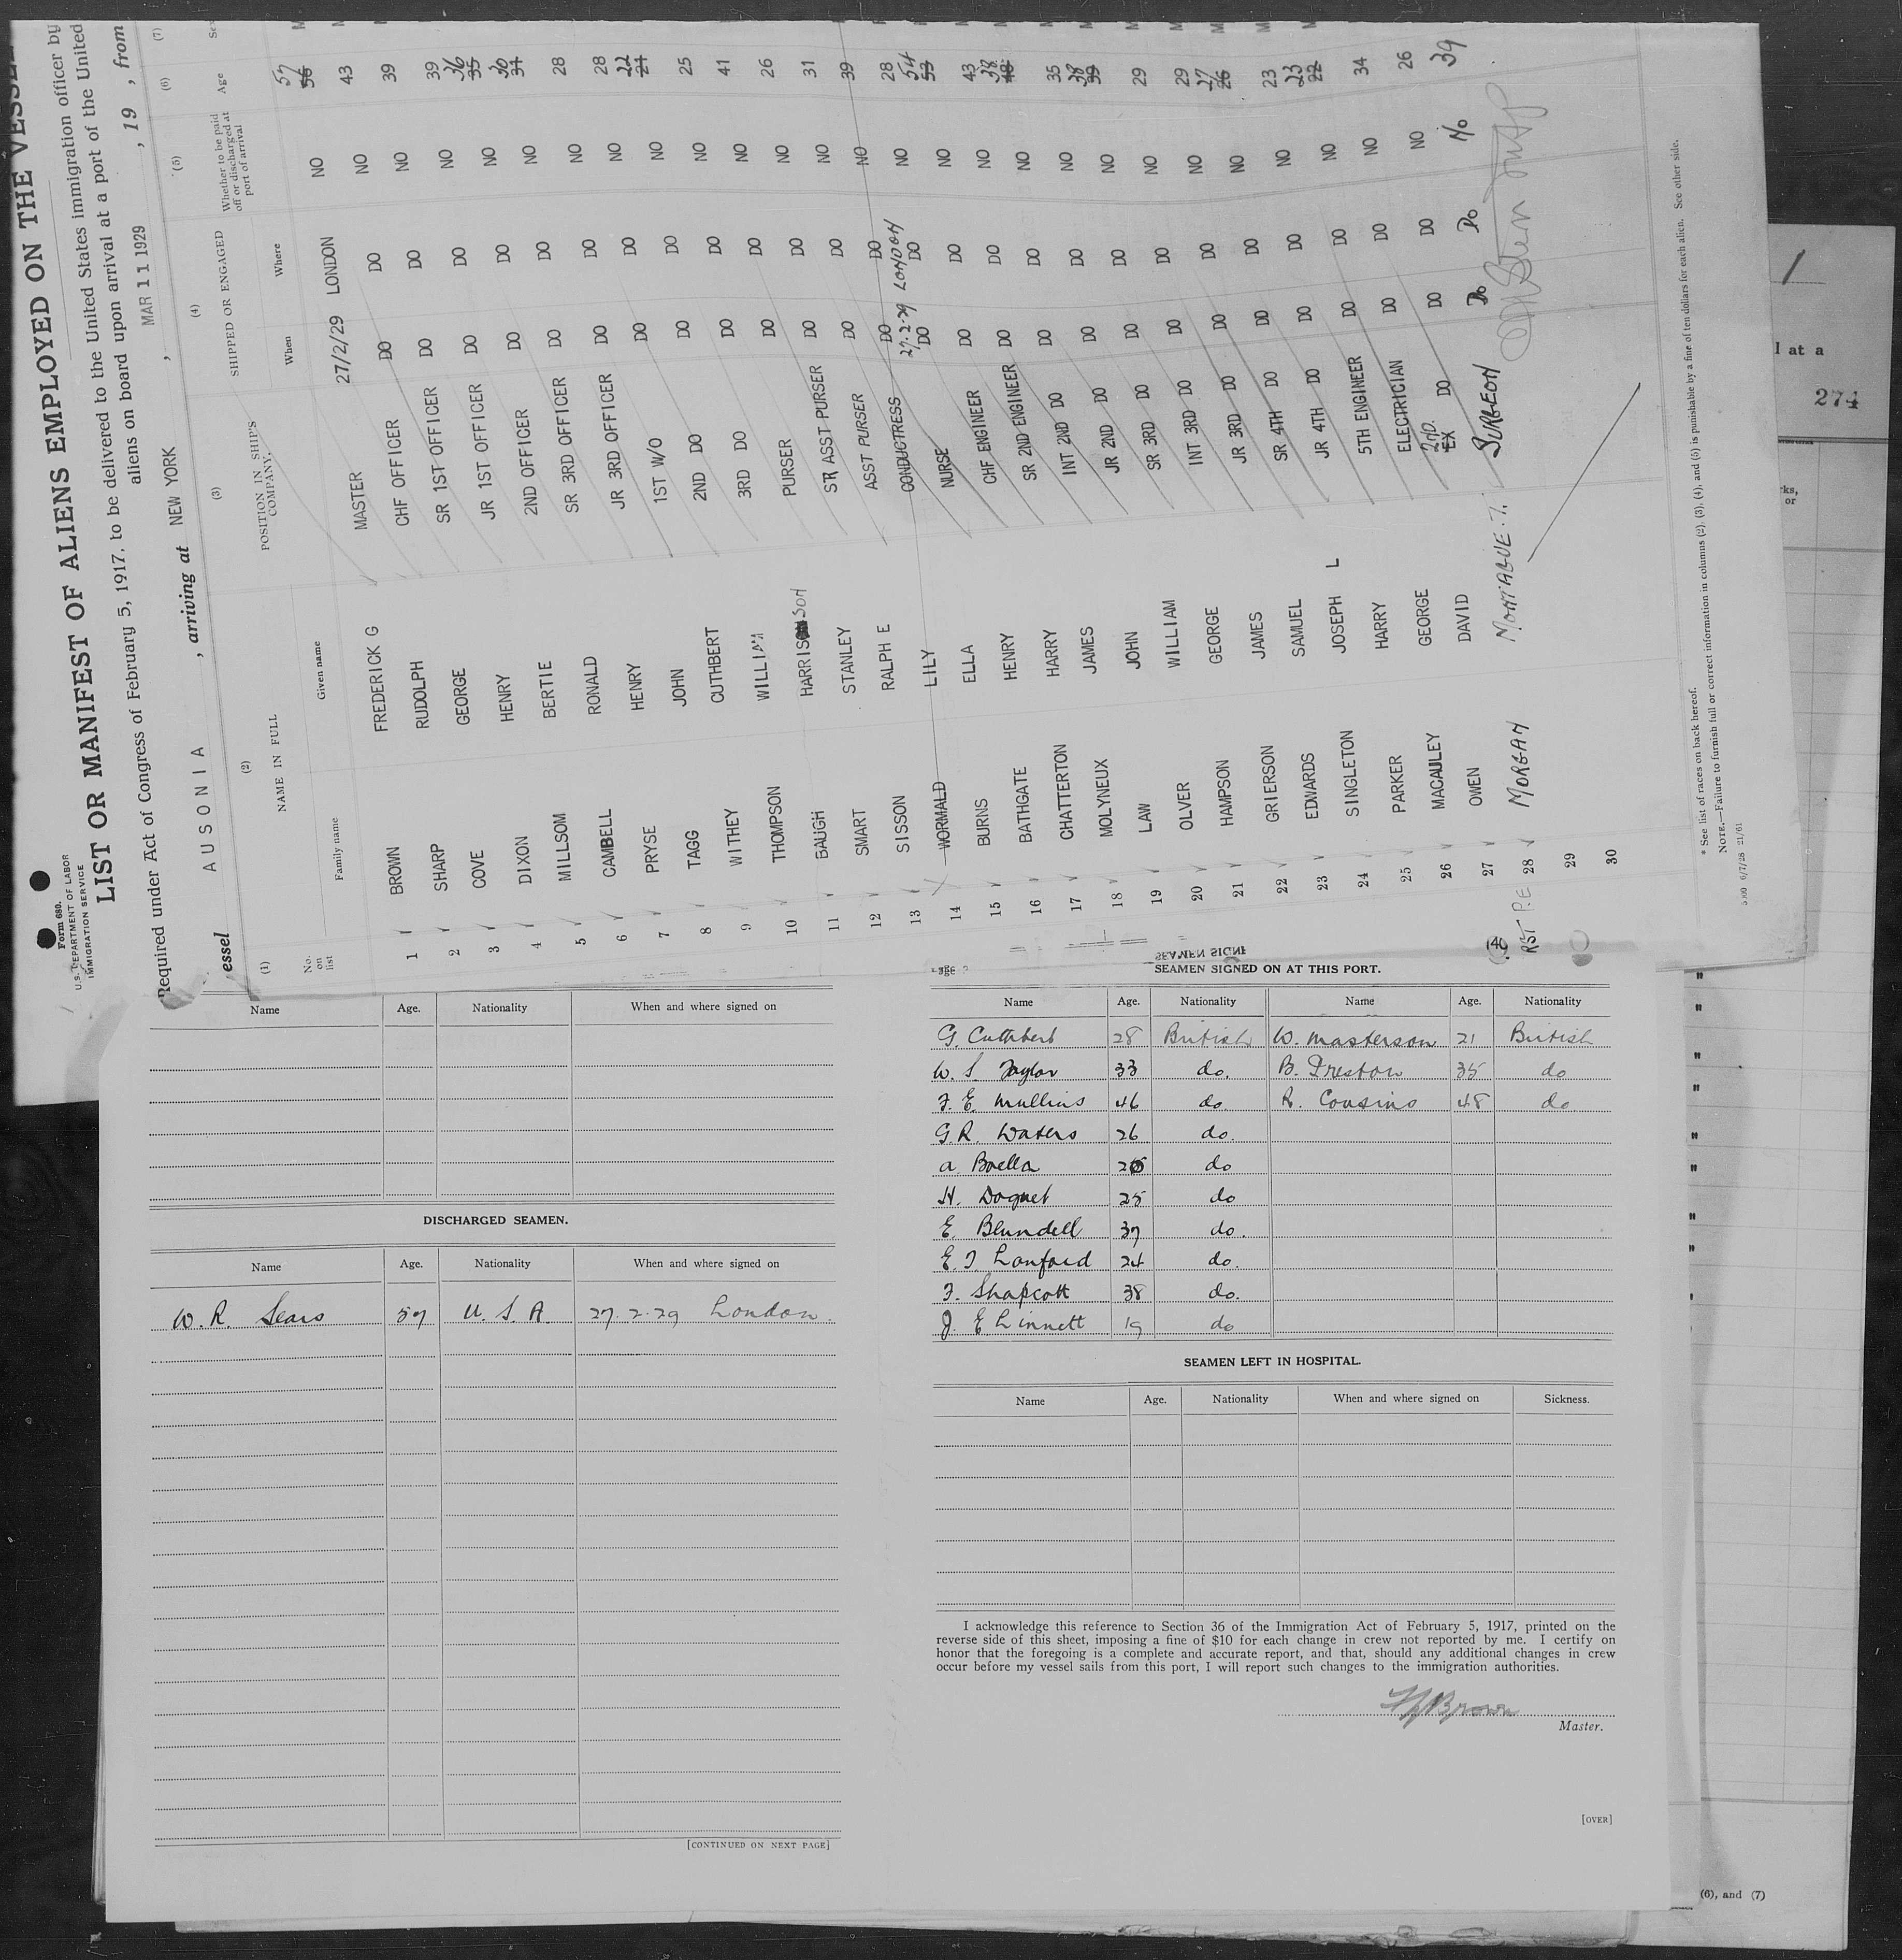 Form 680.
U. S. DEPARTMENT OF LABOR
IMMIGRATION SERVICE
LIST OR MANIFEST OF ALIENS EMPLOYED ON THE VESSEL
Required under Act of Congress of February 5, 1917, to be delivered to the United States immigration officer by
aliens on board upon arrival at a port of the United
essel AUSONIA , arriving at NEW YORK , MAR 11 1929 , 19 , from
(1) (2) (3) (4) (5) (6) (7)
No. on list NAME IN FULL POSITION IN SHIP'S COMPANY. SHIPPED OR ENGAGED Whether to be paid off or discharged at port of arrival Age Sex
Family name Given name When Where
1 BROWN FREDERICK G MASTER 27/2/29 LONDON NO 56 57
2 SHARP RUDOLPH CHF OFFICER DO DO NO 43
3 COVE GEORGE SR 1ST OFFICER DO DO NO 39
4 DIXON HENRY JR 1ST OFFICER DO DO NO 39
5 MILLSOM BERTIE 2ND OFFICER DO DO NO 35 36
6 CAMBELL RONALD SR 3RD OFFICER DO DO NO 34 30
7 PRYSE HENRY JR 3RD OFFICER DO DO NO 28
8 TAGG JOHN 1ST W/O DO DO NO 28
9 WITHEY CUTHBERT 2ND DO DO DO NO 21 22
10 THOMPSON WILLIAM 3RD DO DO DO NO 25
11 BAUGH HARRISON PURSER DO DO NO 41
12 SMART STANLEY SR ASST PURSER DO DO NO 26
13 SISSON RALPH E ASST PURSER DO DO NO 31
14 WORMALD LILY CONDUCTRESS DO DO NO 39
15 BURNS ELLA NURSE 27.2.29 LONDON DO DO NO 28
16 BATHGATE HENRY CHF ENGINEER DO DO NO 53 54
17 CHATTERTON HARRY SR 2ND ENGINEER DO DO NO 43
18 MOLYNEUX JAMES INT 2ND DO DO DO NO 38
19 LAW JOHN JR 2ND DO DO DO NO 35
20 OLVER WILLIAM SR 3RD DO DO DO NO 39 38
21 HAMPSON GEORGE INT 3RD DO DO DO NO 29
22 GRIERSON JAMES JR 3RD DO DO DO NO 29
23 EDWARDS SAMUEL SR 4TH DO DO DO NO 26 27
24 SINGLETON JOSEPH L JR 4TH DO DO DO NO 23
25 PARKER HARRY 5TH ENGINEER DO DO NO 22 23
26 MACAULEY GEORGE ELECTRICIAN DO DO NO 34
27 OWEN DAVID EX 2ND. DO DO DO NO 26
28 MORGAN MONTAGUE. T. SURGEON Do Do No 39
29
30
* See list of races on back hereof.
NOTE.—Failure to furnish full or correct information in columns (2), (3), (4), and (6) is punishable by a fine of ten dollars for each alien. See other side.
l at a
274
ks,
or
(6), and (7)
Name Age. Nationality When and where signed on
DISCHARGED SEAMEN.
Name Age. Nationality When and where signed on
W. R. Sears 57 U. S. A. 27. 2. 29 London.
[CONTINUED ON NEXT PAGE]
SEAMEN SIGNED ON AT THIS PORT.
Name Age. Nationality Name Age. Nationality
G. Cuthbert 28 British W. Masterson 21 British
W. S. Taylor 33 do. B. Preston 35 do
F. E. Mullins 46 do. R. Cousins 48 do
G R. Waters 26 do.
A. Boella 26 do
H. Doquet 25 do
E. Blundell 37 do.
E. J. Lanford 24 do.
F. Shapcott 38 do.
J. E Linnett 19 do
SEAMEN LEFT IN HOSPITAL.
Name Age. Nationality When and where signed on Sickness.
I acknowledge this reference to Section 36 of the Immigration Act of February 5, 1917, printed on the
reverse side of this sheet, imposing a fine of $10 for each change in crew not reported by me. I certify on
honor that the foregoing is a complete and accurate report, and that, should any additional changes in crew
occur before my vessel sails from this port, I will report such changes to the immigration authorities.
F G Brown
Master.
[OVER]